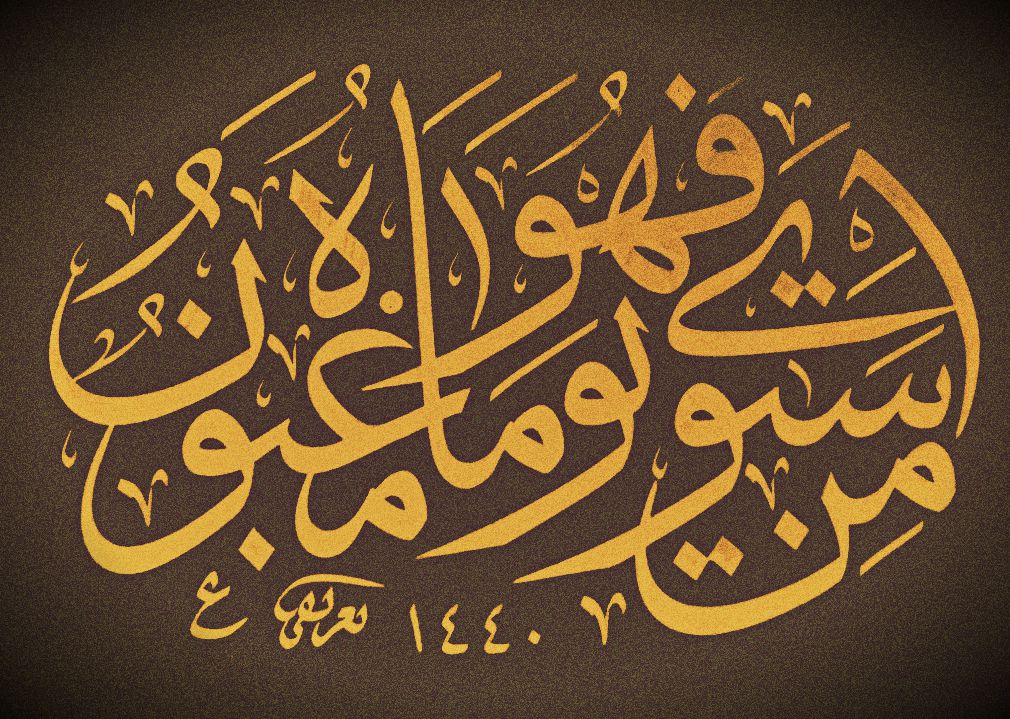 من استوى يوماه فهو مغبون
١٤٤٠